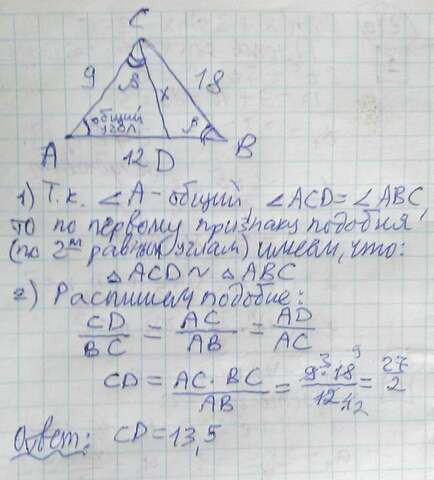 C
9 β x 18
общий
угол β
A 12 D B
1) Т.к. ∠A - общий, ∠ACD = ∠ABC,
то по первому признаку подобия
(по 2м равным углам) имеем, что:
△ACD ~ △ABC
2) Распишем подобие:
CD/BC = AC/AB = AD/AC
CD = AC · BC/AB = 9 · 18/12 = 27/2
3 9 2
Ответ: CD = 13,5